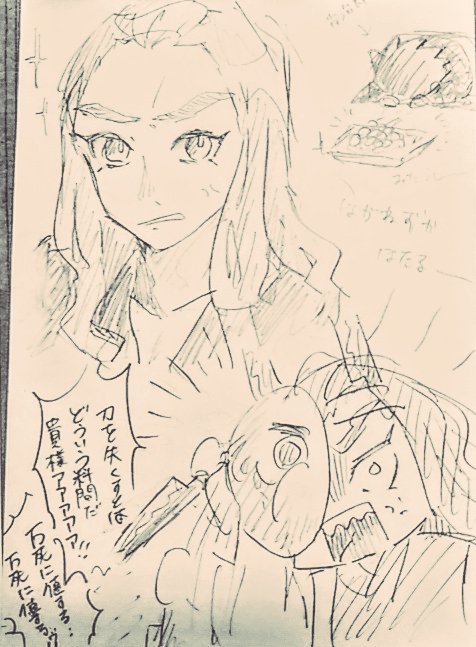 はがねずか
ほたる
刀を失くすとは
どういう料簡だ
貴様アアアアア!!
万死に値する…
万死に値する!!